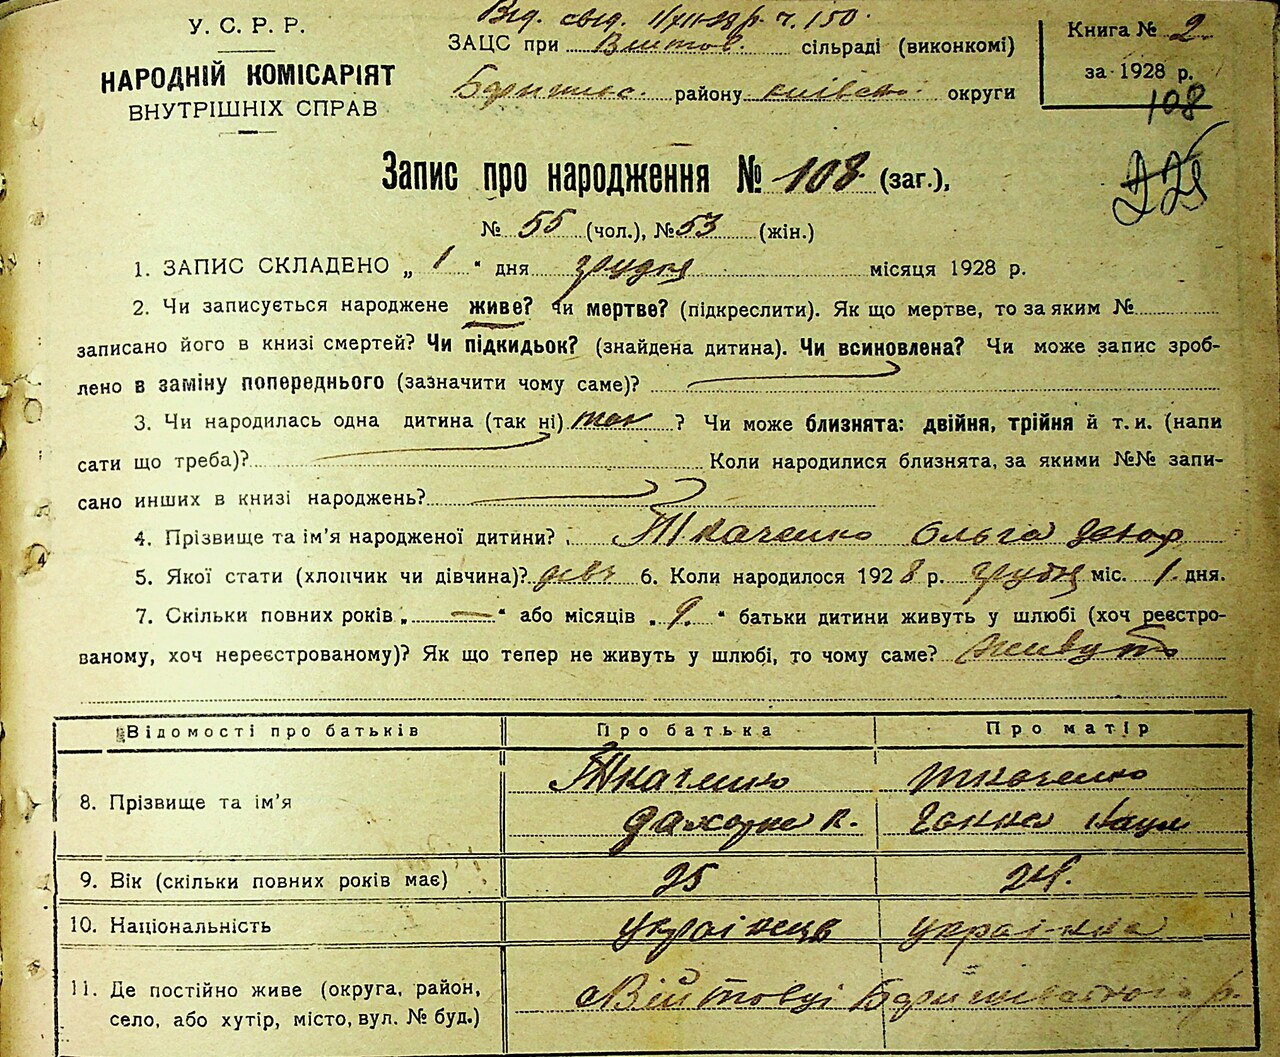 Вид. свід. 1/XII-28 р. ч. 150.
У. С. Р. Р.
НАРОДНІЙ КОМІСАРІЯТ
ВНУТРІШНІХ СПРАВ
ЗАЦС при Війтов. сільраді (виконкомі)
району київської округи
Книга № 2
за 1928 р.
108
Запис про народження № 108 (заг.),
№ 55 (чол.), № 53 (жін.)
1. ЗАПИС СКЛАДЕНО „ 1 " дня грудня місяця 1928 р.
2. Чи записується народжене живе? чи мертве? (підкреслити). Як що мертве, то за яким №
записано його в книзі смертей? Чи підкидьок? (знайдена дитина). Чи всиновлена? Чи може запис зроб-
лено в заміну попереднього (зазначити чому саме)?
3. Чи народилась одна дитина (так ні) так ? Чи може близнята: двійня, трійня й т. и. (напи
сати що треба)? Коли народилися близнята, за якими №№ запи-
сано инших в книзі народжень?
4. Прізвище та ім'я народженої дитини? Ткаченко Ольга
5. Якої стати (хлопчик чи дівчина)? дівч 6. Коли народилося 1928 р. грудня міс. 1. дня.
7. Скільки повних років „ — " або місяців „ 9. " батьки дитини живуть у шлюбі (хоч реєстро-
ваному, хоч нереєстрованому)? Як що тепер не живуть у шлюбі, то чому саме? живуть
Відомості про батьків Про батька Про матір
8. Прізвище та ім'я Ткаченко Ткаченко
К. Ганна Наум
9. Вік (скільки повних років має) 25 24.
10. Національність українець українка
11. Де постійно живе (округа, район,
село, або хутір, місто, вул. № буд.) Війтовці р.